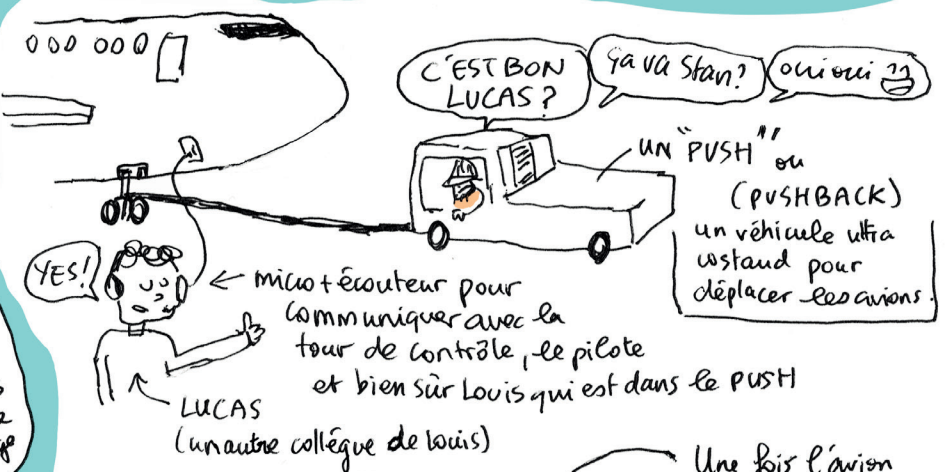 C'EST BON
LUCAS?
ça va Stan?
oui oui
UN "PUSH" ou
(PUSHBACK)
un véhicule ultra
costaud pour
déplacer les avions.
YES!
micro + écouteur pour
communiquer avec la
tour de contrôle, le pilote
et bien sûr Louis qui est dans le PUSH
LUCAS
(un autre collégue de Louis)
Une fois l'avion